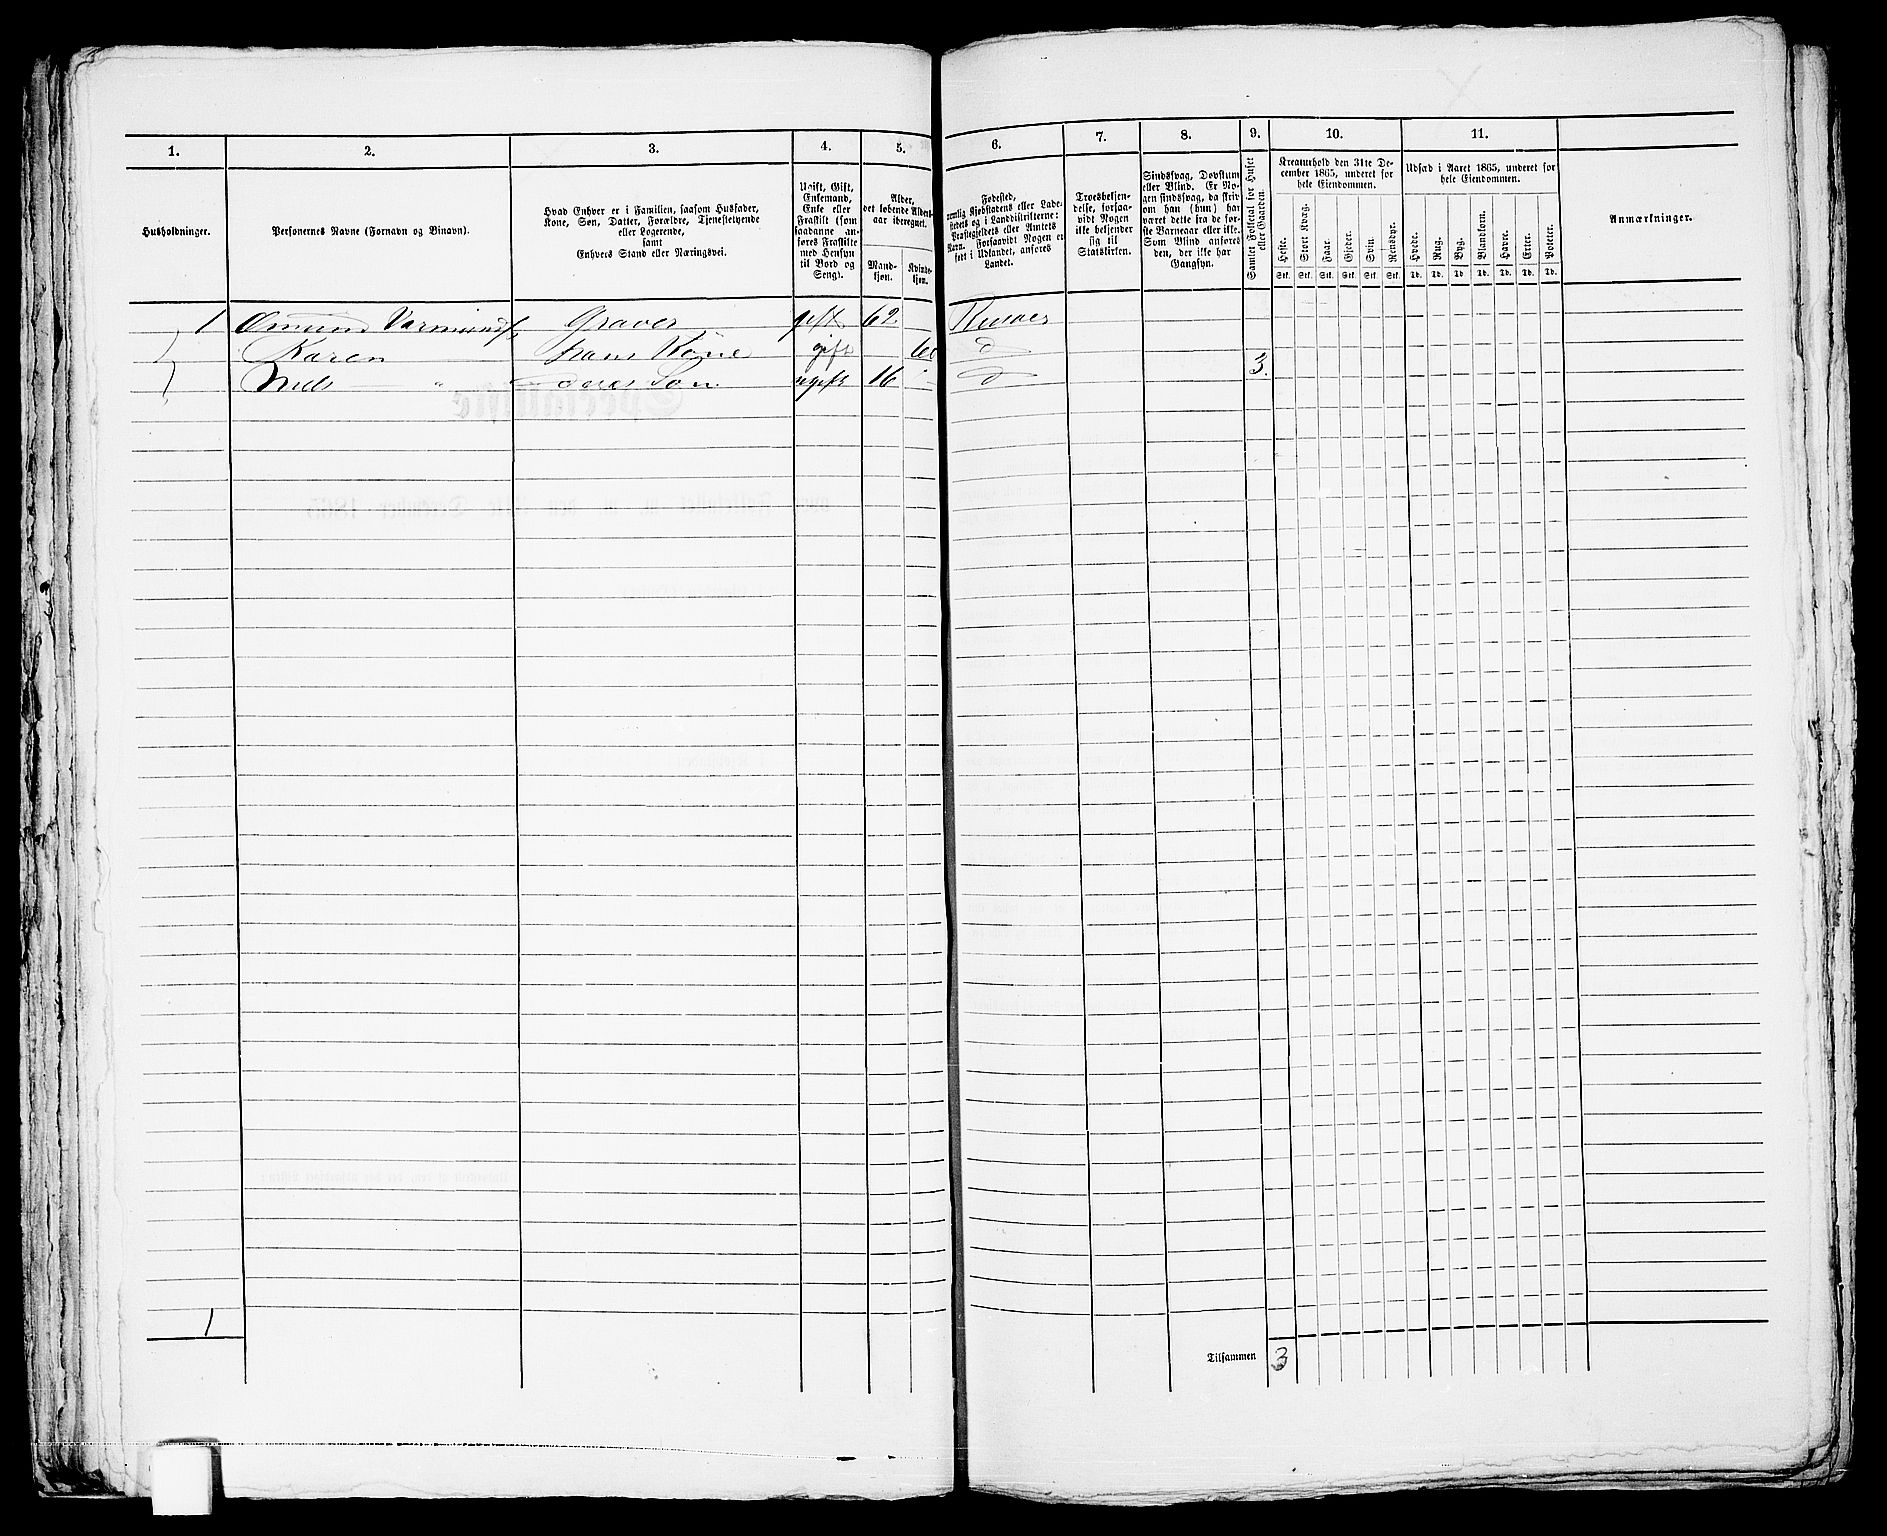 1. 2. 3. 4. 5. 6. 7. 8. 9. 10. 11.
Husholdninger.
Personernes Navne (Fornavn og Binavn).
Hvad Enhver er i Familien, saasom Husfader,
Kone, Søn, Datter, Forældre, Tjenestetyende
eller Logerende,
samt
Enhvers Stand eller Næringsvei.
Ugift, Gift,
Enkemand,
Enke eller
Fraskilt (som
saadanne an-
føres Fraskilte
med Hensyn
til Bord og
Seng).
Alder,
det løbende Alders-
aar iberegnet.
Mand-
kjøn.
Kvinde-
kjøn.
Fødested,
nemlig Kjøbstadens eller Lade-
stedets og i Landdistrikterne:
Præstegjeldets eller Amtets
Navn. Forsaavidt Nogen er
født i Udlandet, anføres
Landet.
Troesbekjen-
delse, forsaa-
vidt Nogen
ikke bekjender
sig til
Statskirken.
Sindssvag, Døvstum
eller Blind. Er No-
gen sindssvag, da skriv
om han (hun) har
været dette fra de før-
ste Barneaar eller ikke.
Som Blind anføres
den, der ikke har
Gangsyn.
Samlet Folketal for Huset
eller Gaarden.
Kreaturhold den 31te De-
cember 1865, underet for
hele Eiendommen.
Heste. Stort Kvæg. Faar. Gjeder. Svin. Rensdyr.
Stk. Stk. Stk. Stk. Stk. Stk.
Udsæd i Aaret 1865, underet for
hele Eiendommen.
Hvede. Rug. Byg. Blandkorn. Havre. Erter. Poteter.
Td. Td. Td. Td. Td. Td. Td.
Anmærkninger.
1 Omund Varmunds Graver gift 62
Karen hans Kone gift d
Niels " deres Søn ugift 16 d 3.
1
Tilsammen 3